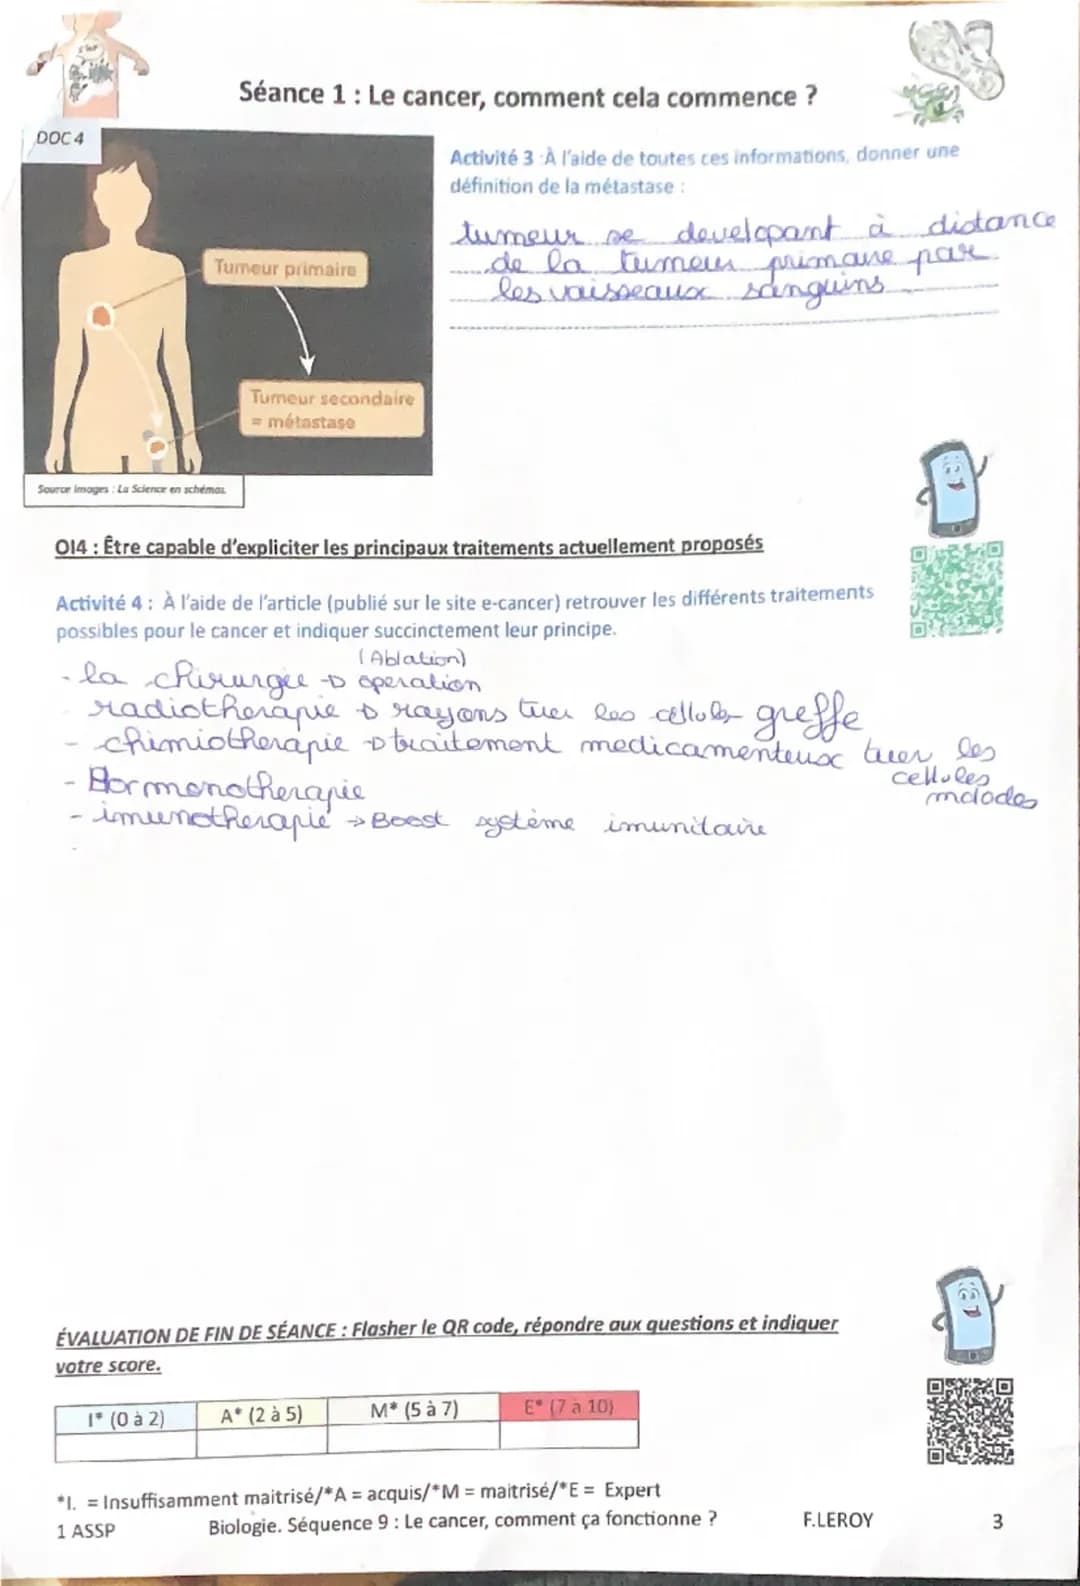 Séance 1 : Le cancer, comment cela commence ?
DOC 4
Tumeur primaire
Tumeur secondaire
= métastase
Source images : La Science en schémas.
Activité 3 : À l'aide de toutes ces informations, donner une
définition de la métastase :
tumeur se developant à distance
de la tumeur primaire par
les vaisseaux sanguins
OI4 : Être capable d'expliciter les principaux traitements actuellement proposés
Activité 4 : À l'aide de l'article (publié sur le site e-cancer) retrouver les différents traitements
possibles pour le cancer et indiquer succinctement leur principe.
(Ablation)
- la chirurgie → operation
radiotherapie → rayons tuer les cellules greffe
- chimiotherapie → traitement medicamenteux tuer les
cellules
malades
- Hormonotherapie
- imunotherapie → Boost système imunitaire
-
ÉVALUATION DE FIN DE SÉANCE : Flasher le QR code, répondre aux questions et indiquer
votre score.
I* (0 à 2) A* (2 à 5) M* (5 à 7) E* (7 à 10)
*I. = Insuffisamment maitrisé/*A = acquis/*M = maitrisé/*E = Expert
1 ASSP Biologie. Séquence 9 : Le cancer, comment ça fonctionne ? F.LEROY 3